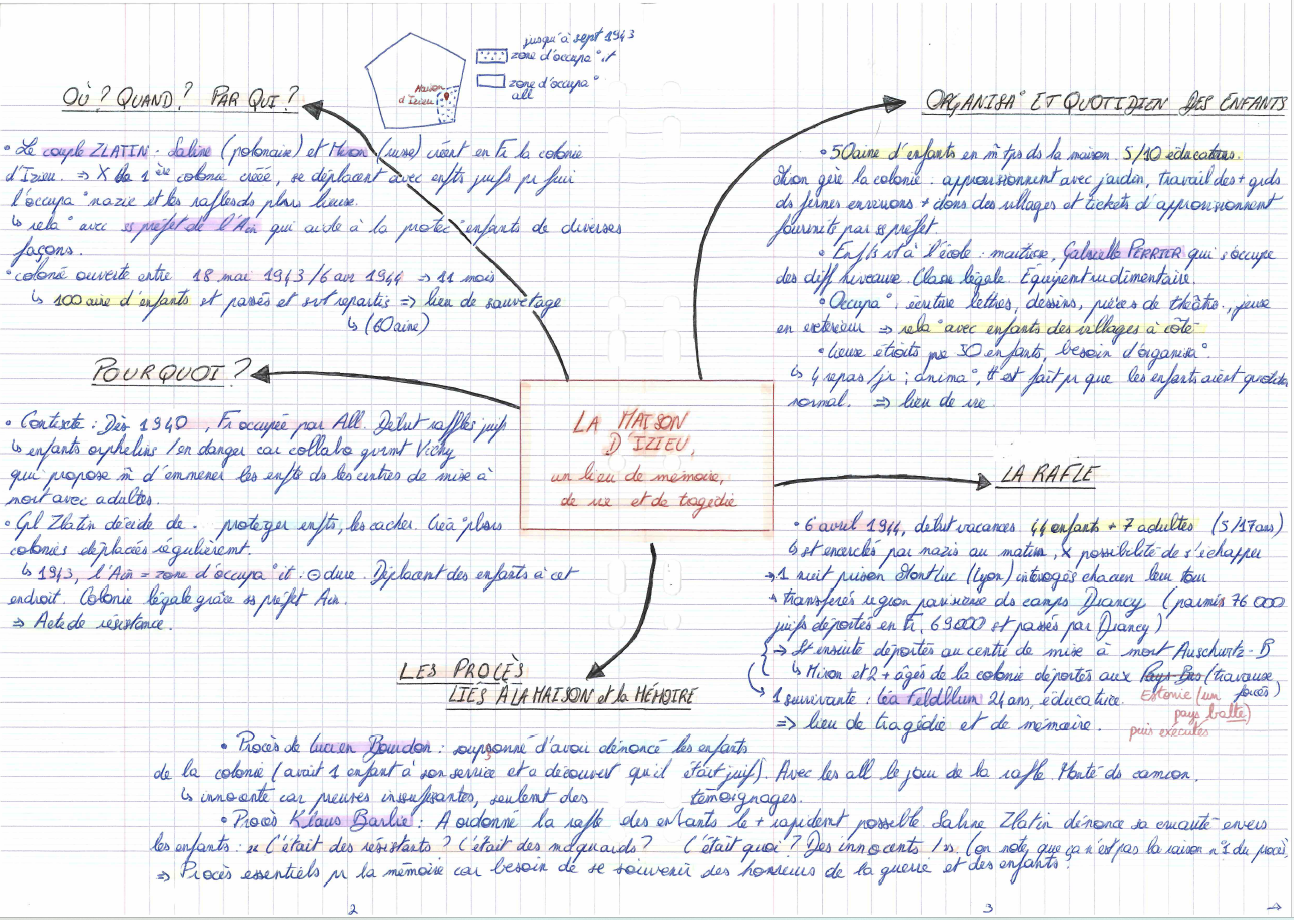 jusqu'à sept 1943
zone d'occupa° it
zone d'occupa°
all
Maison
d'Izieu
OÙ ? QUAND ? PAR QUI ?
• Le couple ZLATIN - Sabine (polonaise) et Miron (russe) créent en Fr la colonie
d'Izieu. ⇒ X la 1ère colonie créé, se déplacent avec enfts juifs pr fuir
l'occupa° nazie et les rafles ds plsrs lieux.
↳ rela° avec ss préfet de l'Ain qui aide à la protec° enfants de diverses
façons.
• colonie ouverte entre 18 mai 1943 / 6 avr 1944 ⇒ 11 mois
↳ 100aine d'enfants st passés et st repartis ⇒ lieu de sauvetage
↳ (60aine)
POURQUOI ?
• Contexte : Dès 1940, Fr occupée par All. Début raffles juifs
↳ enfants orphelins / en danger car collabo gvrnt Vichy
qui propose m̂ d'emmener les enfts ds les centres de mise à
mort avec adultes.
• Gl Zlatin décide de protéger enfts, les cacher. Créa° plsrs
colonies déplacés régulièremt.
↳ 1943, l'Ain = zone d'occupa° it : ⊖ dure. Déplacent des enfants à cet
endroit. Colonie légale grâce ss préfet Ain.
⇒ Acte de résistance.
LA MAISON
D'IZIEU,
un lieu de mémoire,
de vie et de tragédie
ORGANISA° ET QUOTIDIEN DES ENFANTS
• 50aine d'enfants en m̂ tps ds la maison. 5/10 éducateurs.
Miron gère la colonie : approvisionnent avec jardin, travail des + grds
ds fermes environs + dons des villages et tickets d'approvisionnent
fournité par ss préfet.
• Enfts vt à l'école : maitresse, Gabrielle PERRIER qui s'occupe
des diff niveaux. Classe légale. Équipent rudimentaire.
• Occupa° : écriture lettres, dessins, pièces de théâtre, jeux
en extérieur ⇒ rela° avec enfants des villages à côté
• lieux étroits pr 50 enfants, besoin d'organisa°.
↳ 4 repas/jr ; anima°, tt est fait pr que les enfants aient quotidien
normal. ⇒ lieu de vie.
LA RAFLE
• 6 avril 1944, début vacances 44 enfants + 7 adultes (5/17ans)
↳ st encerclés par nazis au matin, X possibilité de s'échapper
→ 1 nuit prison Montluc (Lyon) interrogés chacun leur tour
→ transférés région parisienne ds camps Drancy (parmis 76 000
juifs déportés en Fr, 69 000 st passés par Drancy)
→ St ensuite déportés au centre de mise à mort Auschwitz-B
↳ Miron et 2 + âgés de la colonie déportés aux Pays-Bas (travaux
forcés)
Estonie (un
pays balte)
puis exécutés
1 survivante : Léa Feldblum 24 ans, éducatrice.
⇒ lieu de tragédie et de mémoire.
LES PROCÈS
LIÉS À LA MAISON et la MÉMOIRE
• Procès de Lucien Bourdon : soupçonné d'avoir dénoncé les enfants
de la colonie (avait 1 enfant à son service et a découvert qu'il était juif). Avec les all le jour de la rafle. Monté ds camion.
↳ innocenté car preuves insuffisantes, seulent des témoignages.
• Procès Klaus Barbie : A ordonné la rafle des enfants le + rapident possible Sabine Zlatin dénonce sa cruauté envers
les enfants : « C'était des résistants ? C'était des maquisards ? C'était quoi ? Des innocents ! ». (on note, que ça n'est pas la raison n°1 du procès)
⇒ Procès essentiels pr la mémoire car besoin de se souvenir des horreurs de la guerre et des enfants.
2
3
→